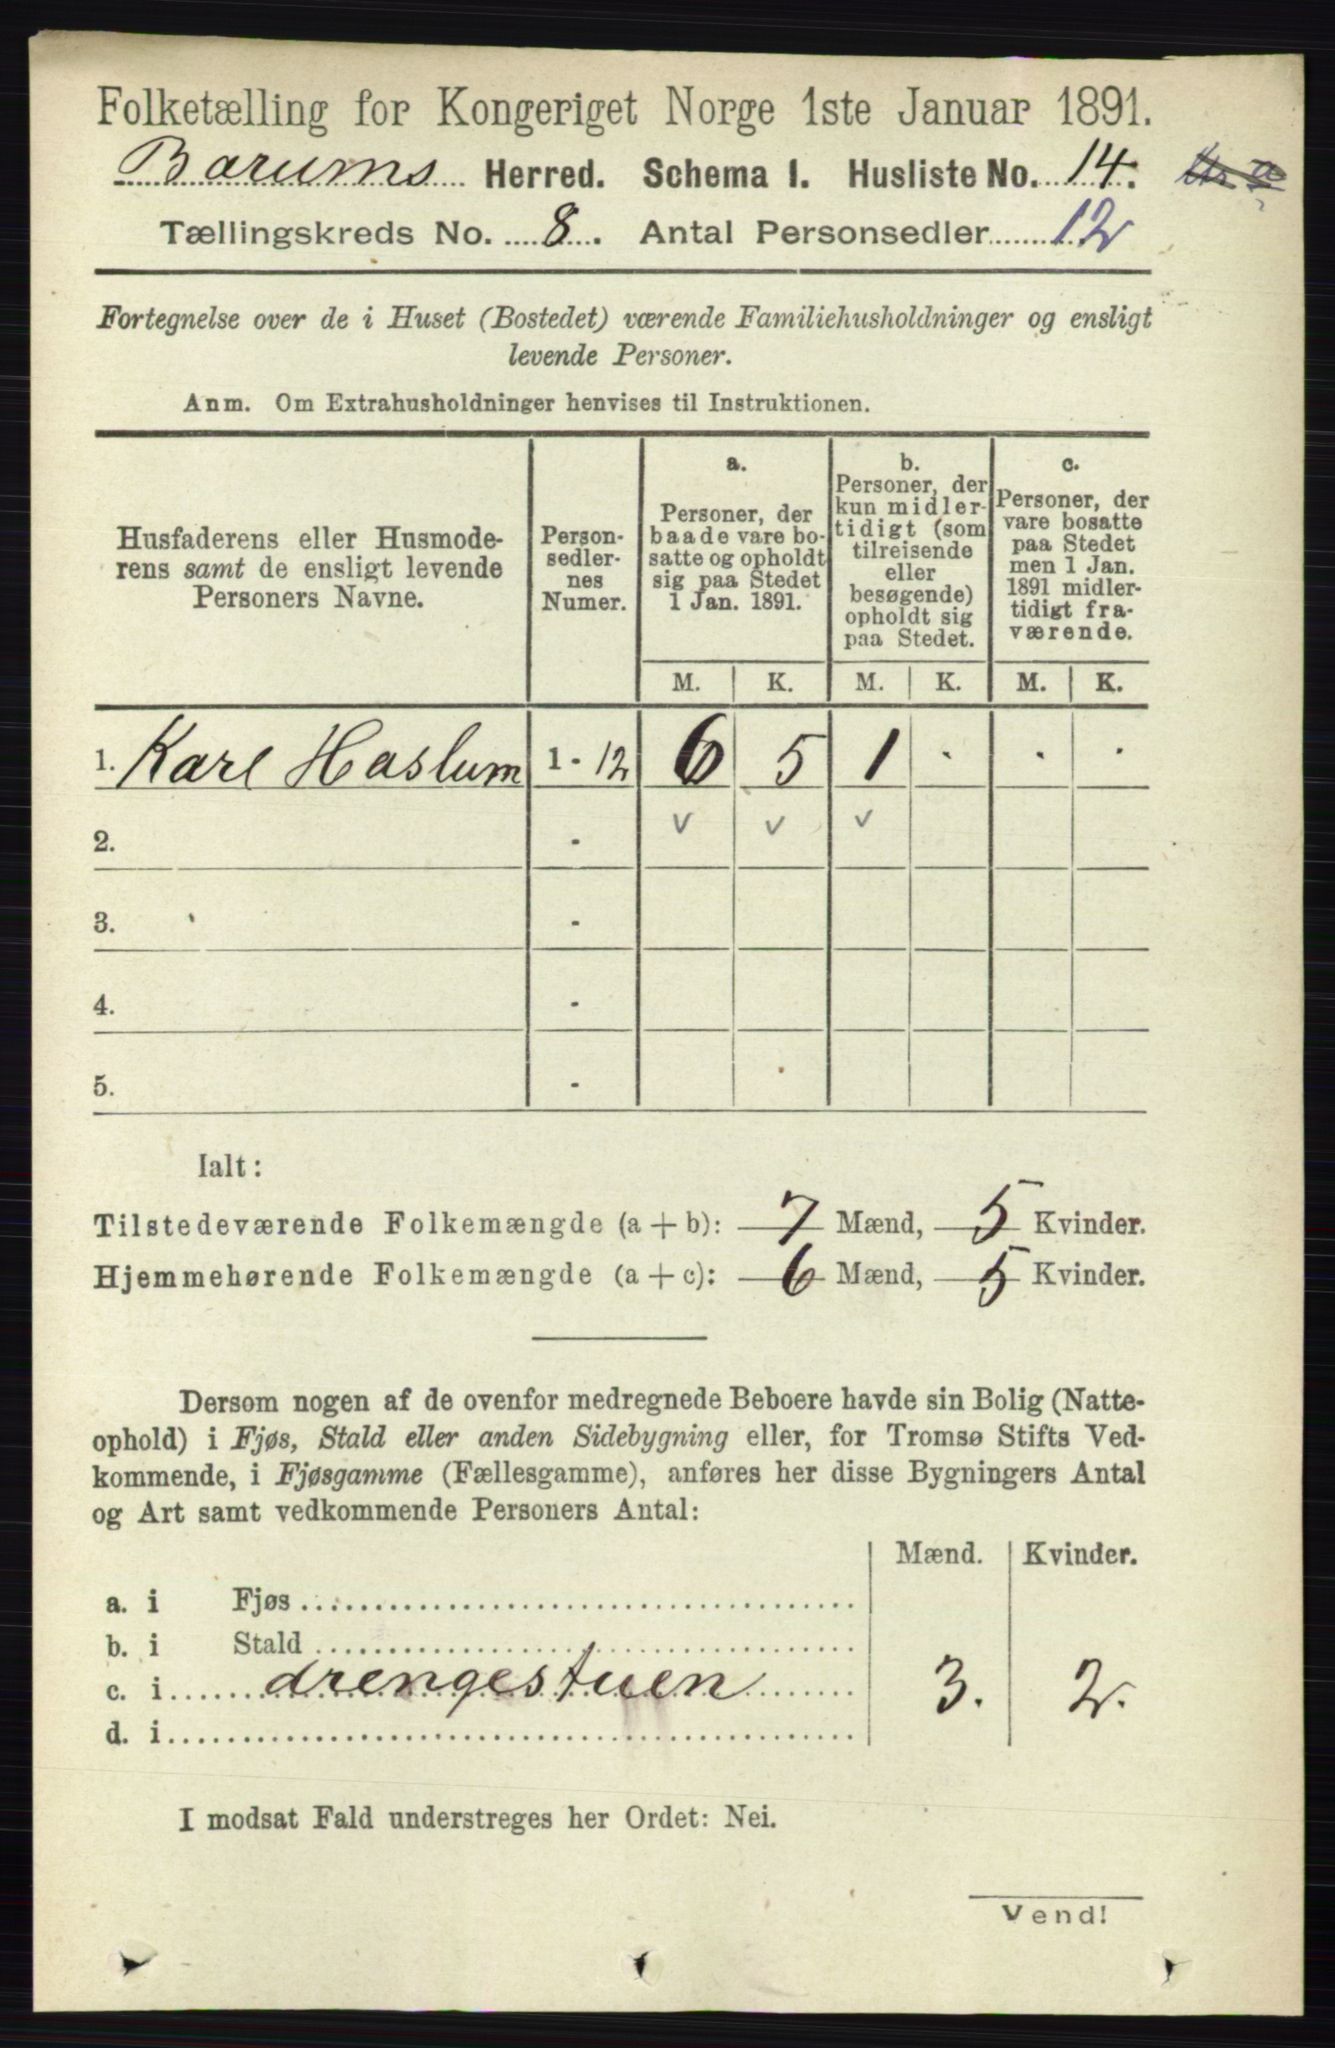 Folketælling for Kongeriget Norge 1ste Januar 1891.
Bærums Herred. Schema 1. Husliste No. 14.
Tællingskreds No. 8. Antal Personsedler 12
Fortegnelse over de i Huset (Bostedet) værende Familiehusholdninger og ensligt
levende Personer.
Anm. Om Extrahusholdninger henvises til Instruktionen.
Husfaderens eller Husmode-
rens samt de ensligt levende
Personers Navne.
Person-
sedler-
nes
Numer.
a.
Personer, der
baade vare bo-
satte og opholdt
sig paa Stedet
1 Jan. 1891.
b.
Personer, der
kun midler-
tidigt (som
tilreisende
eller
besøgende)
opholdt sig
paa Stedet.
c.
Personer, der
vare bosatte
paa Stedet
men 1 Jan.
1891 midler-
tidigt fra-
værende.
M. K. M. K. M. K.
1. Karl Haslum 1 - 12 6 5 1 . . .
2. - v v v
3. -
4. -
5. -
Ialt:
Tilstedeværende Folkemængde (a + b): 7 Mænd, 5 Kvinder.
Hjemmehørende Folkemængde (a + c): 6 Mænd, 5 Kvinder.
Dersom nogen af de ovenfor medregnede Beboere havde sin Bolig (Natte-
ophold) i Fjøs, Stald eller anden Sidebygning eller, for Tromsø Stifts Ved-
kommende, i Fjøsgamme (Fællesgamme), anføres her disse Bygningers Antal
og Art samt vedkommende Personers Antal:
Mænd. Kvinder.
a. i Fjøs
b. i Stald
c. i drengestuen 3. 2.
d. i
I modsat Fald understreges her Ordet: Nei.
Vend!